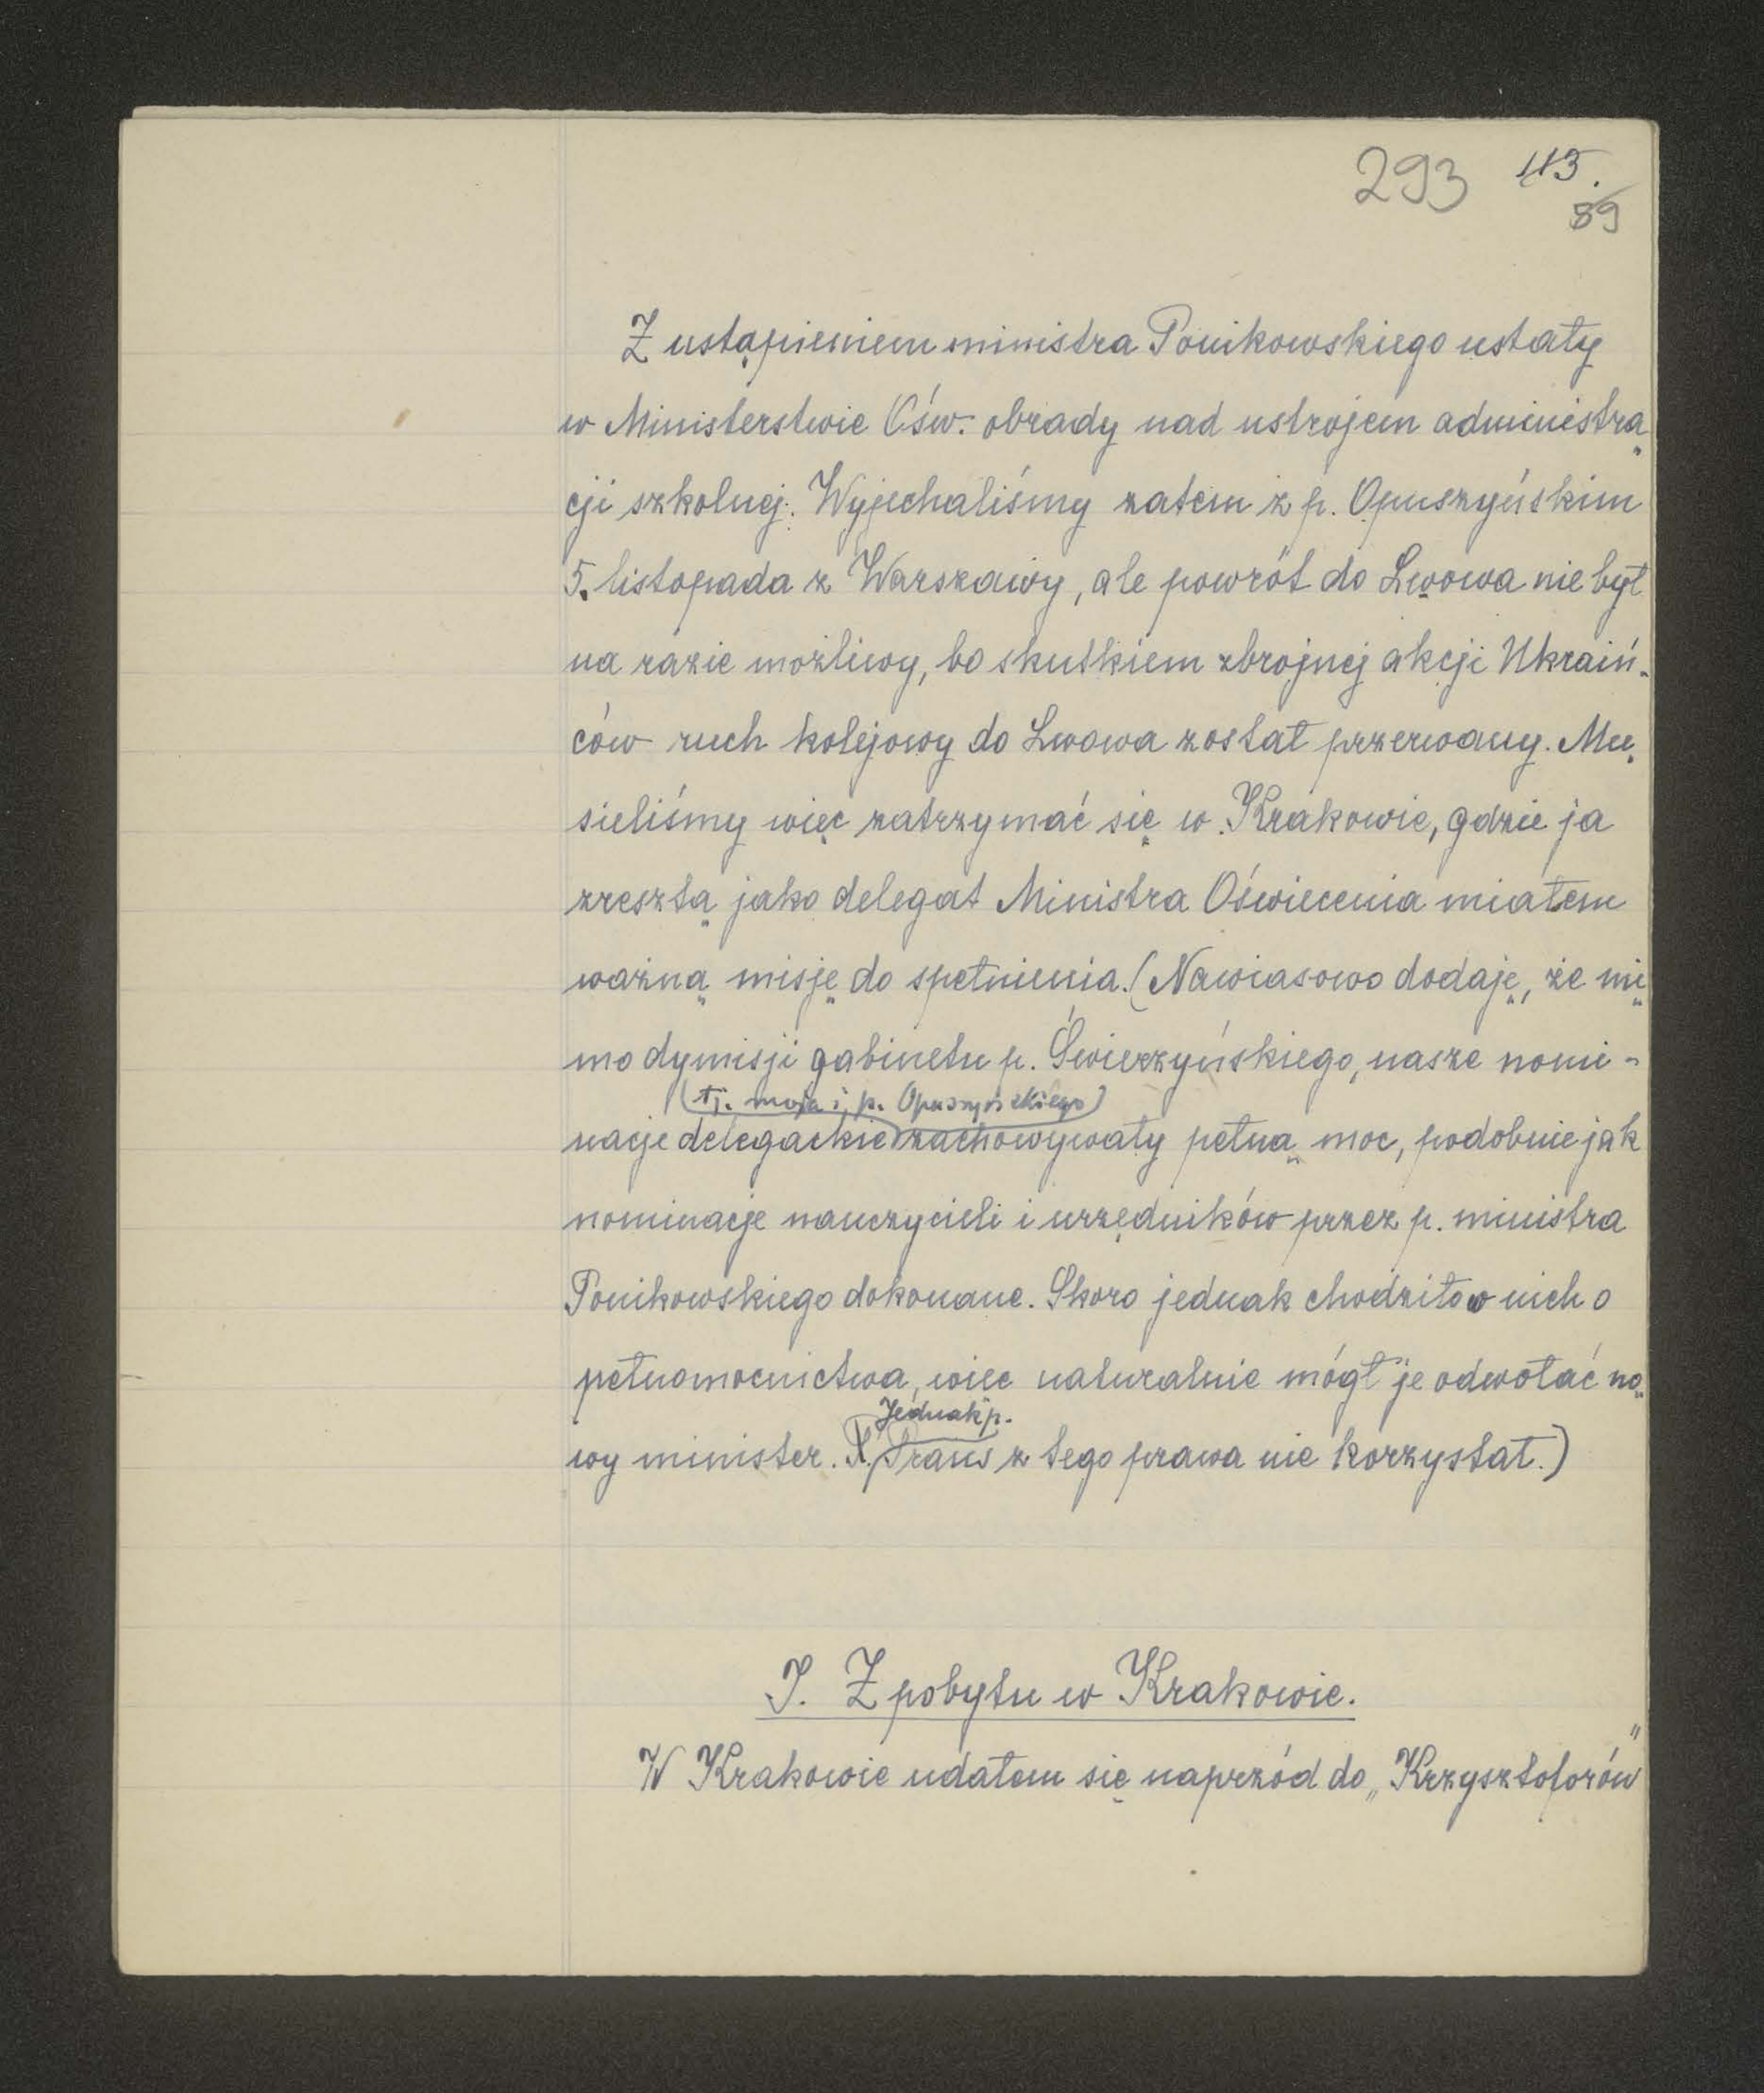 293 43.
89
Z ustąpieniem ministra Ponikowskiego ustały
w Ministerstwie Ośw. obrady nad ustrojem administra-
cji szkolnej. Wyjechaliśmy zatem z p. Opuszyńskim
5. listopada z Warszawy, ale powrót do Lwowa nie był
na razie możliwy, bo skutkiem zbrojnej akcji Ukraiń-
ców ruch kolejowy do Lwowa został przerwany. Mu-
sieliśmy więc zatrzymać się w Krakowie, gdzie ja
zresztą jako delegat Ministra Oświecenia miałem
ważną misję do spełnienia. (Nawiasowo dodaję, że mi-
mo dymisji gabinetu p. Świerzyńskiego, nasze nomi-
(tj. moja i p. Opuszyńskiego)
nacje delegackie zachowywały pełną moc, podobnie jak
nominacje nauczycieli i urzędników przez p. ministra
Ponikowskiego dokonane. Skoro jednak chodziło w nich o
pełnomocnictwa, więc naturalnie mógł je odwołać no-
Jednak p.
wy minister. Prauss z tego prawa nie korzystał.)
I. Z pobytu w Krakowie.
W Krakowie udałem się naprzód do „Krzysztoforów"